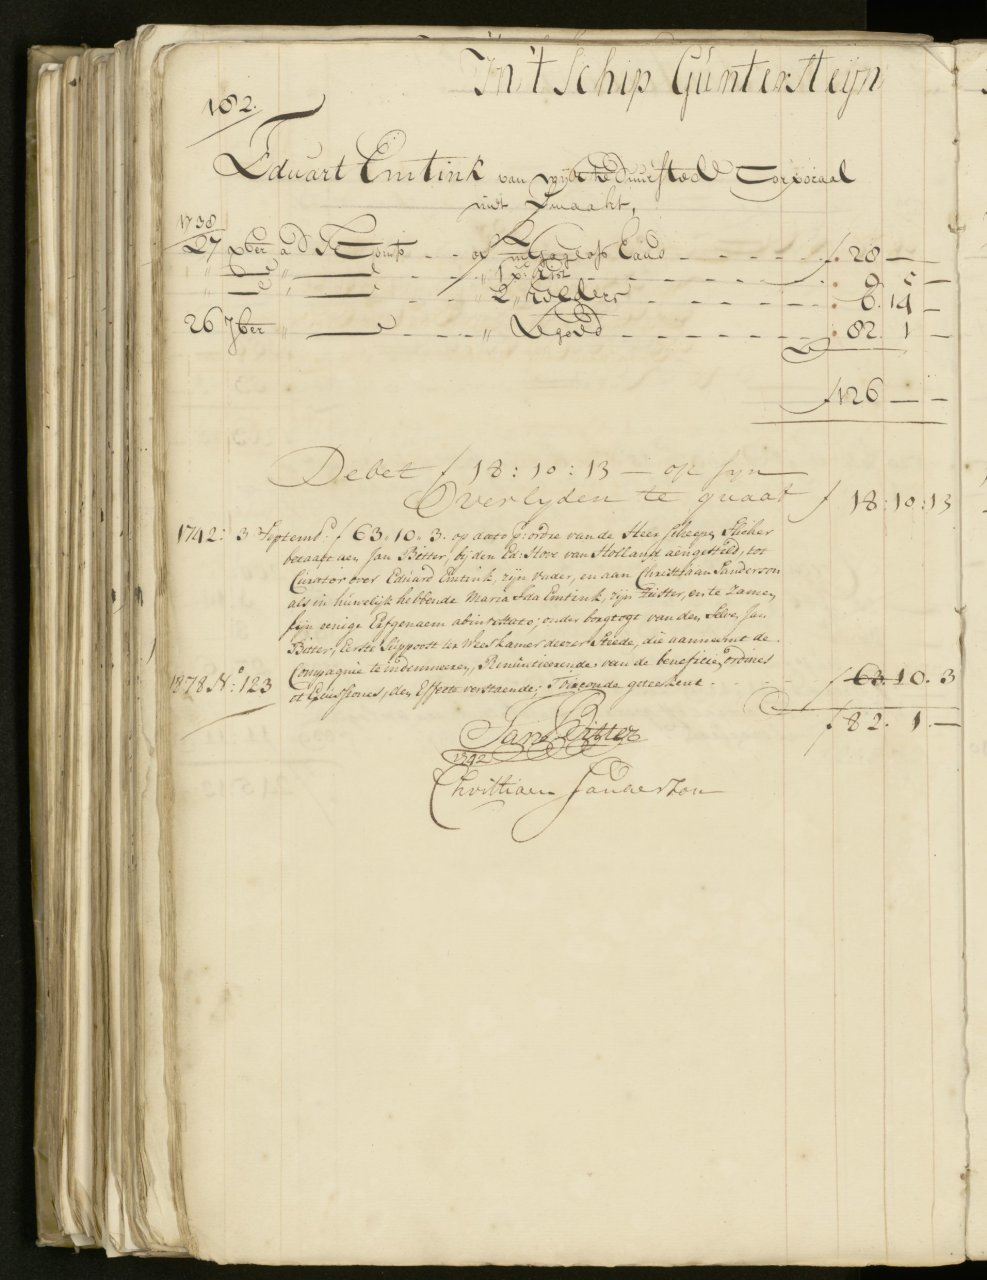 In 't Schip Guntersteijn
182.
Eduart Emtink van wijk te duurstede Corporaal
niet Gemaakt,
1738
27 xber a d E Comp . . op 2/m Gagies Caas . . . f. 28 —
" — " — " 1 p: kist . . . 9 5 —
" — " — " 2 " Zolders . . . 6. 14 —
26 7ber " — " Tegoed . . . 82. 1 —
f 126 — —
Debet f 18:10:13 — op syn
Overlyden te quaat f 18:10:13
1742: 3 Septemb: f 63. 10. 3. op dato p: ordre van de Heer Scheepen Sticher
betaalt aen Jan Bitter, bij den Ed: Hove van Holland aengesteld, tot
Curator over Eduard Emtink, zijn vader, en aan Christiaan Sanderson
als in huwelijk hebbende Maria Ida Emtink, zijn Suster, en te zamen
sijn eenige Erfgenaem abintestato; onder borgtogt van den selve Jan
Bitter, Eerste Suppoost ter Weeskamer deezer Steede, die aanneemt de
Compagnie te indemneeren, Renuntieerende van de beneficie ordines
1878 N:o 123 et Excussionis, den Effecte verstaende; T'oirconde geteekent . . . f 63. 10. 3
f 82. 1. —
Jan Bitter
1742
Christiaen Sanderson